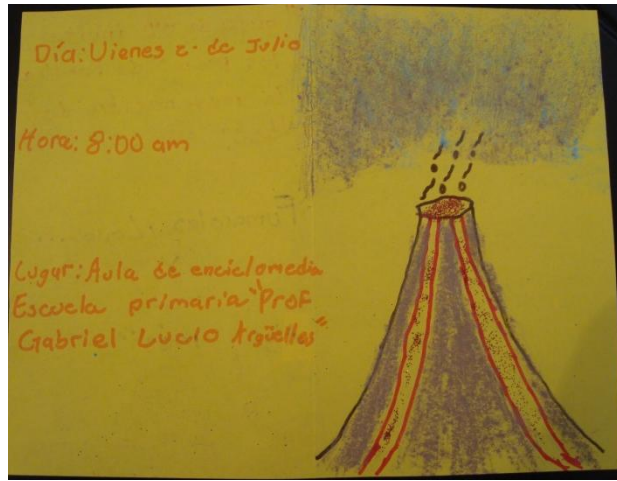 Día: Uienes 2 de Julio
Hora: 8:00 am
Lugar: Aula de enciclomedia
Escuela primaria "Prof
Gabriel Lucio Argüelles"